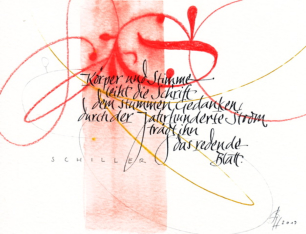 Körper und Stimme
leiht die Schrift
dem stummen Gedanken,
durch der Jahrhunderte Strom
trägt ihn
das redende
Blatt.
SCHILLER
2013